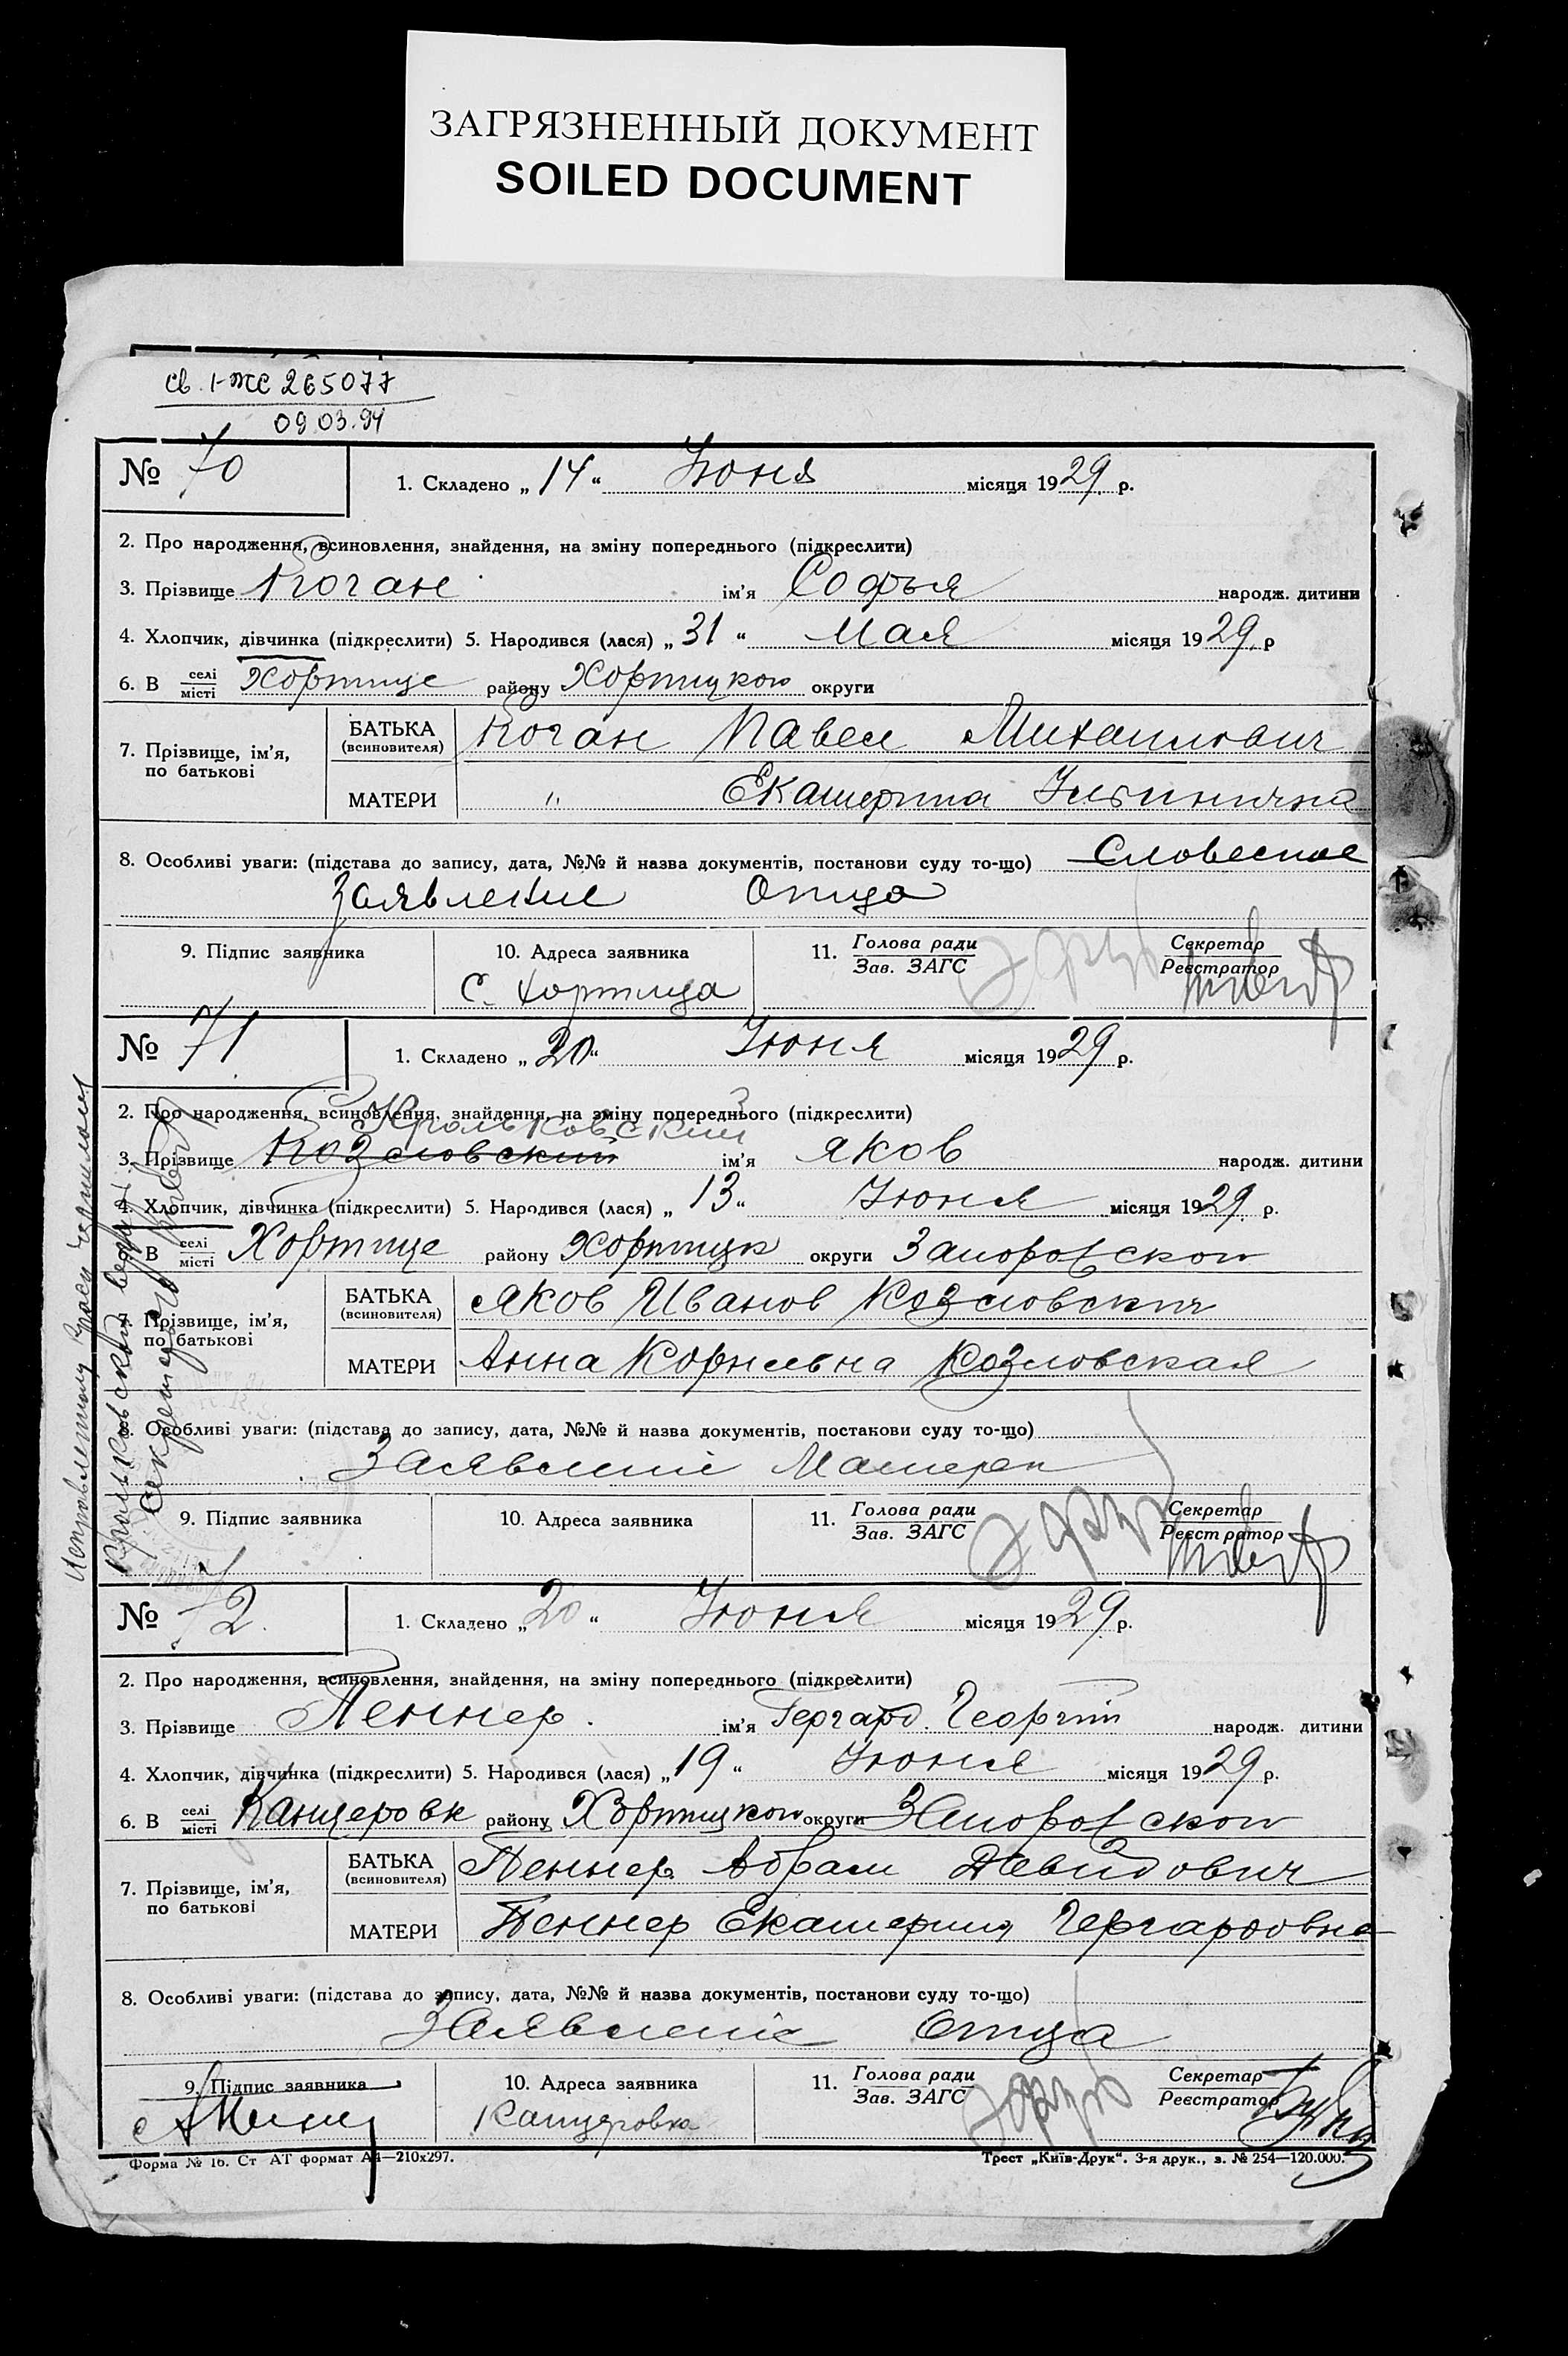 ЗАГРЯЗНЕННЫЙ ДОКУМЕНТ
SOILED DOCUMENT
св. 1-ЖС 265077
09.03.94
№ 70 1. Складено „14“ Июня місяця 1929 р.
2. Про народження, всиновлення, знайдення, на зміну попереднього (підкреслити)
3. Прізвище Коган ім'я Софья народж. дитини
4. Хлопчик, дівчинка (підкреслити) 5. Народився (лася) „31“ Мая місяця 1929 р
6. В селі місті Хортице району Хортицкого округи
7. Прізвище, ім'я, по батькові
БАТЬКА (всиновителя) Коган Павел Михайлович
МАТЕРИ " Екатерина Ильинична
8. Особливі уваги: (підстава до запису, дата, №№ й назва документів, постанови суду то-що) Словесное
Заявление Отца
9. Підпис заявника 10. Адреса заявника 11. Голова ради Зав. ЗАГС Секретар Реєстратор
С. Хортица
№ 71 1. Складено „20“ Июня місяця 1929 р.
2. Про народження, всиновлення, знайдення, на зміну попереднього (підкреслити)
Крольковский
3. Прізвище Козловский ім'я Яков народж. дитини
4. Хлопчик, дівчинка (підкреслити) 5. Народився (лася) „13“ Июня місяця 1929 р.
6. В селі місті Хортице району Хортицк округи Запорожской
7. Прізвище, ім'я, по батькові
БАТЬКА (всиновителя) Яков Иванов Козловскич
МАТЕРИ Анна Корнеевна Козловская
8. Особливі уваги: (підстава до запису, дата, №№ й назва документів, постанови суду то-що)
Заявление Матери
9. Підпис заявника 10. Адреса заявника 11. Голова ради Зав. ЗАГС Секретар Реєстратор
Исправленному
Крольковский верить
Секретарь
№ 72 1. Складено „20“ Июня місяця 1929 р.
2. Про народження, всиновлення, знайдення, на зміну попереднього (підкреслити)
3. Прізвище Пеннер. ім'я Гергард. Георгий народж. дитини
4. Хлопчик, дівчинка (підкреслити) 5. Народився (лася) „19“ Июня місяця 1929 р.
6. В селі місті Канцеровк району Хортицкого округи Запорожской
7. Прізвище, ім'я, по батькові
БАТЬКА (всиновителя) Пеннер Абрам Давидович
МАТЕРИ Пеннер Екатерина Гергардовна
8. Особливі уваги: (підстава до запису, дата, №№ й назва документів, постанови суду то-що)
Заявление Отца
9. Підпис заявника 10. Адреса заявника 11. Голова ради Зав. ЗАГС Секретар Реєстратор
Канцеровка
Форма № 16. Ст АТ формат А4—210х297. Трест „Київ-Друк“. 3-я друк., з. № 254—120.000.